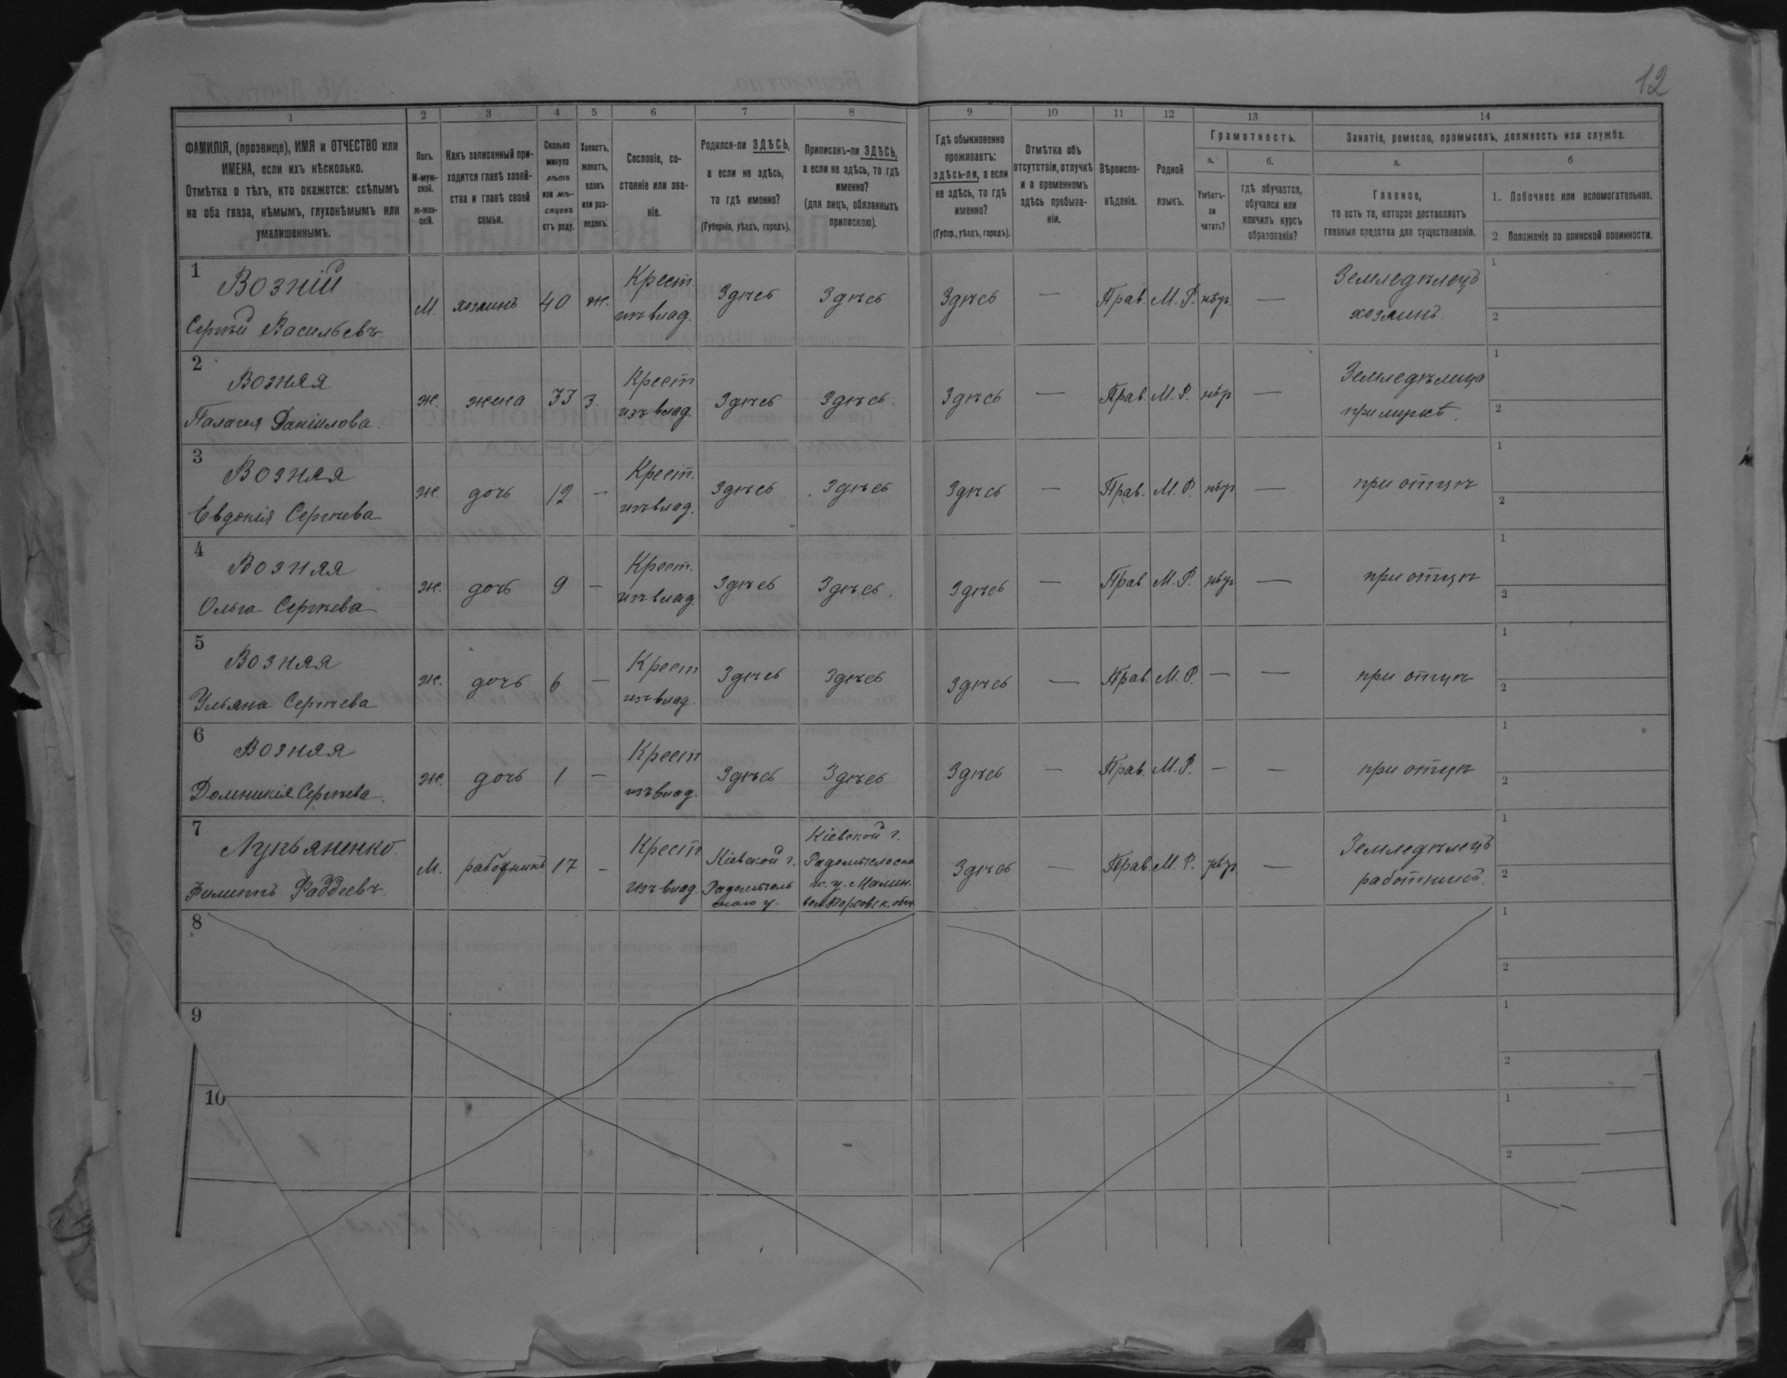 12
1 2 3 4 5 6 7 8 9 10 11 12 13 14
ФАМИЛІЯ, (прозвище), ИМЯ и ОТЧЕСТВО или
ИМЕНА, если ихъ нѣсколько.
Отмѣтка о тѣхъ, кто окажется: слѣпымъ
на оба глаза, нѣмымъ, глухонѣмымъ или
умалишеннымъ.
Полъ.
М-муж-
ской.
ж-жен-
скій.
Какъ записанный при-
ходится главѣ хозяй-
ства и главѣ своей
семьи.
Сколько
минуло
лѣтъ
или мѣ-
сяцевъ
отъ роду.
Холостъ,
женатъ,
вдовъ
или раз-
веденъ.
Сословіе, со-
стояніе или зва-
ніе.
Родился-ли ЗДѢСЬ,
а если не здѣсь,
то гдѣ именно?
(Губернія, уѣздъ, городъ).
Приписанъ-ли ЗДѢСЬ,
а если не здѣсь, то гдѣ
именно?
(для лицъ, обязанныхъ
припискою).
Гдѣ обыкновенно
проживаетъ:
ЗДѢСЬ-ЛИ, а если
не здѣсь, то гдѣ
именно?
(Губер., уѣздъ, городъ).
Отмѣтка объ
отсутствіи, отлучкѣ
и о временномъ
здѣсь пребыва-
ніи.
Вѣроиспо-
вѣданіе.
Родной
языкъ.
Грамотность.
а.
Умѣетъ-
ли
читать?
б.
гдѣ обучается,
обучался или
кончилъ курсъ
образованія?
Занятіе, ремесло, промыселъ, должность или служба.
а.
Главное,
то есть то, которое доставляетъ
главныя средства для существованія.
б
1. Побочное или вспомогательное.
2 Положеніе по воинской повинности.
1 Возній
Сергѣй Васильевъ
М. хозяинъ 40 ж. Крест изъ влад. Здѣсь Здѣсь Здѣсь — Прав М. Р. нѣтъ — Земледѣлецъ хозяинъ 1 2
2 Возняя
Палагея Даніилова
ж. жена 33 з. Крест изъ влад. Здѣсь Здѣсь Здѣсь — Прав. М. Р. нѣтъ — Земледѣлица при мужѣ 1 2
3 Возняя
Евдокія Сергѣева
ж. дочь 12 — Крест. изъ влад. Здѣсь Здѣсь Здѣсь — Прав. М. Р. нѣтъ — при отцѣ 1 2
4 Возняя
Ольга Сергѣева
ж. дочь 9 — Крест. изъ влад. Здѣсь Здѣсь Здѣсь — Прав М. Р. нѣтъ — при отцѣ 1 2
5 Возняя
Ульяна Сергѣева
ж. дочь 6 — Крест изъ влад. Здѣсь Здѣсь Здѣсь — Прав М. Р. — — при отцѣ 1 2
6 Возняя
Домникія Сергѣева
ж. дочь 1 — Крест изъ влад. Здѣсь Здѣсь Здѣсь — Прав. М. Р. — — при отцѣ 1 2
7 Лукьяненко
Филиппъ Фаддеевъ
М. работникъ 17 — Крест изъ влад. Кіевской г. Радомысль скаго у. Кіевской г. Радомысльска го у. Малин. вол. Здѣсь — Прав М. Р. нѣтъ — Земледѣлецъ работникъ 1 2
8 1 2
9 1 2
10 1 2